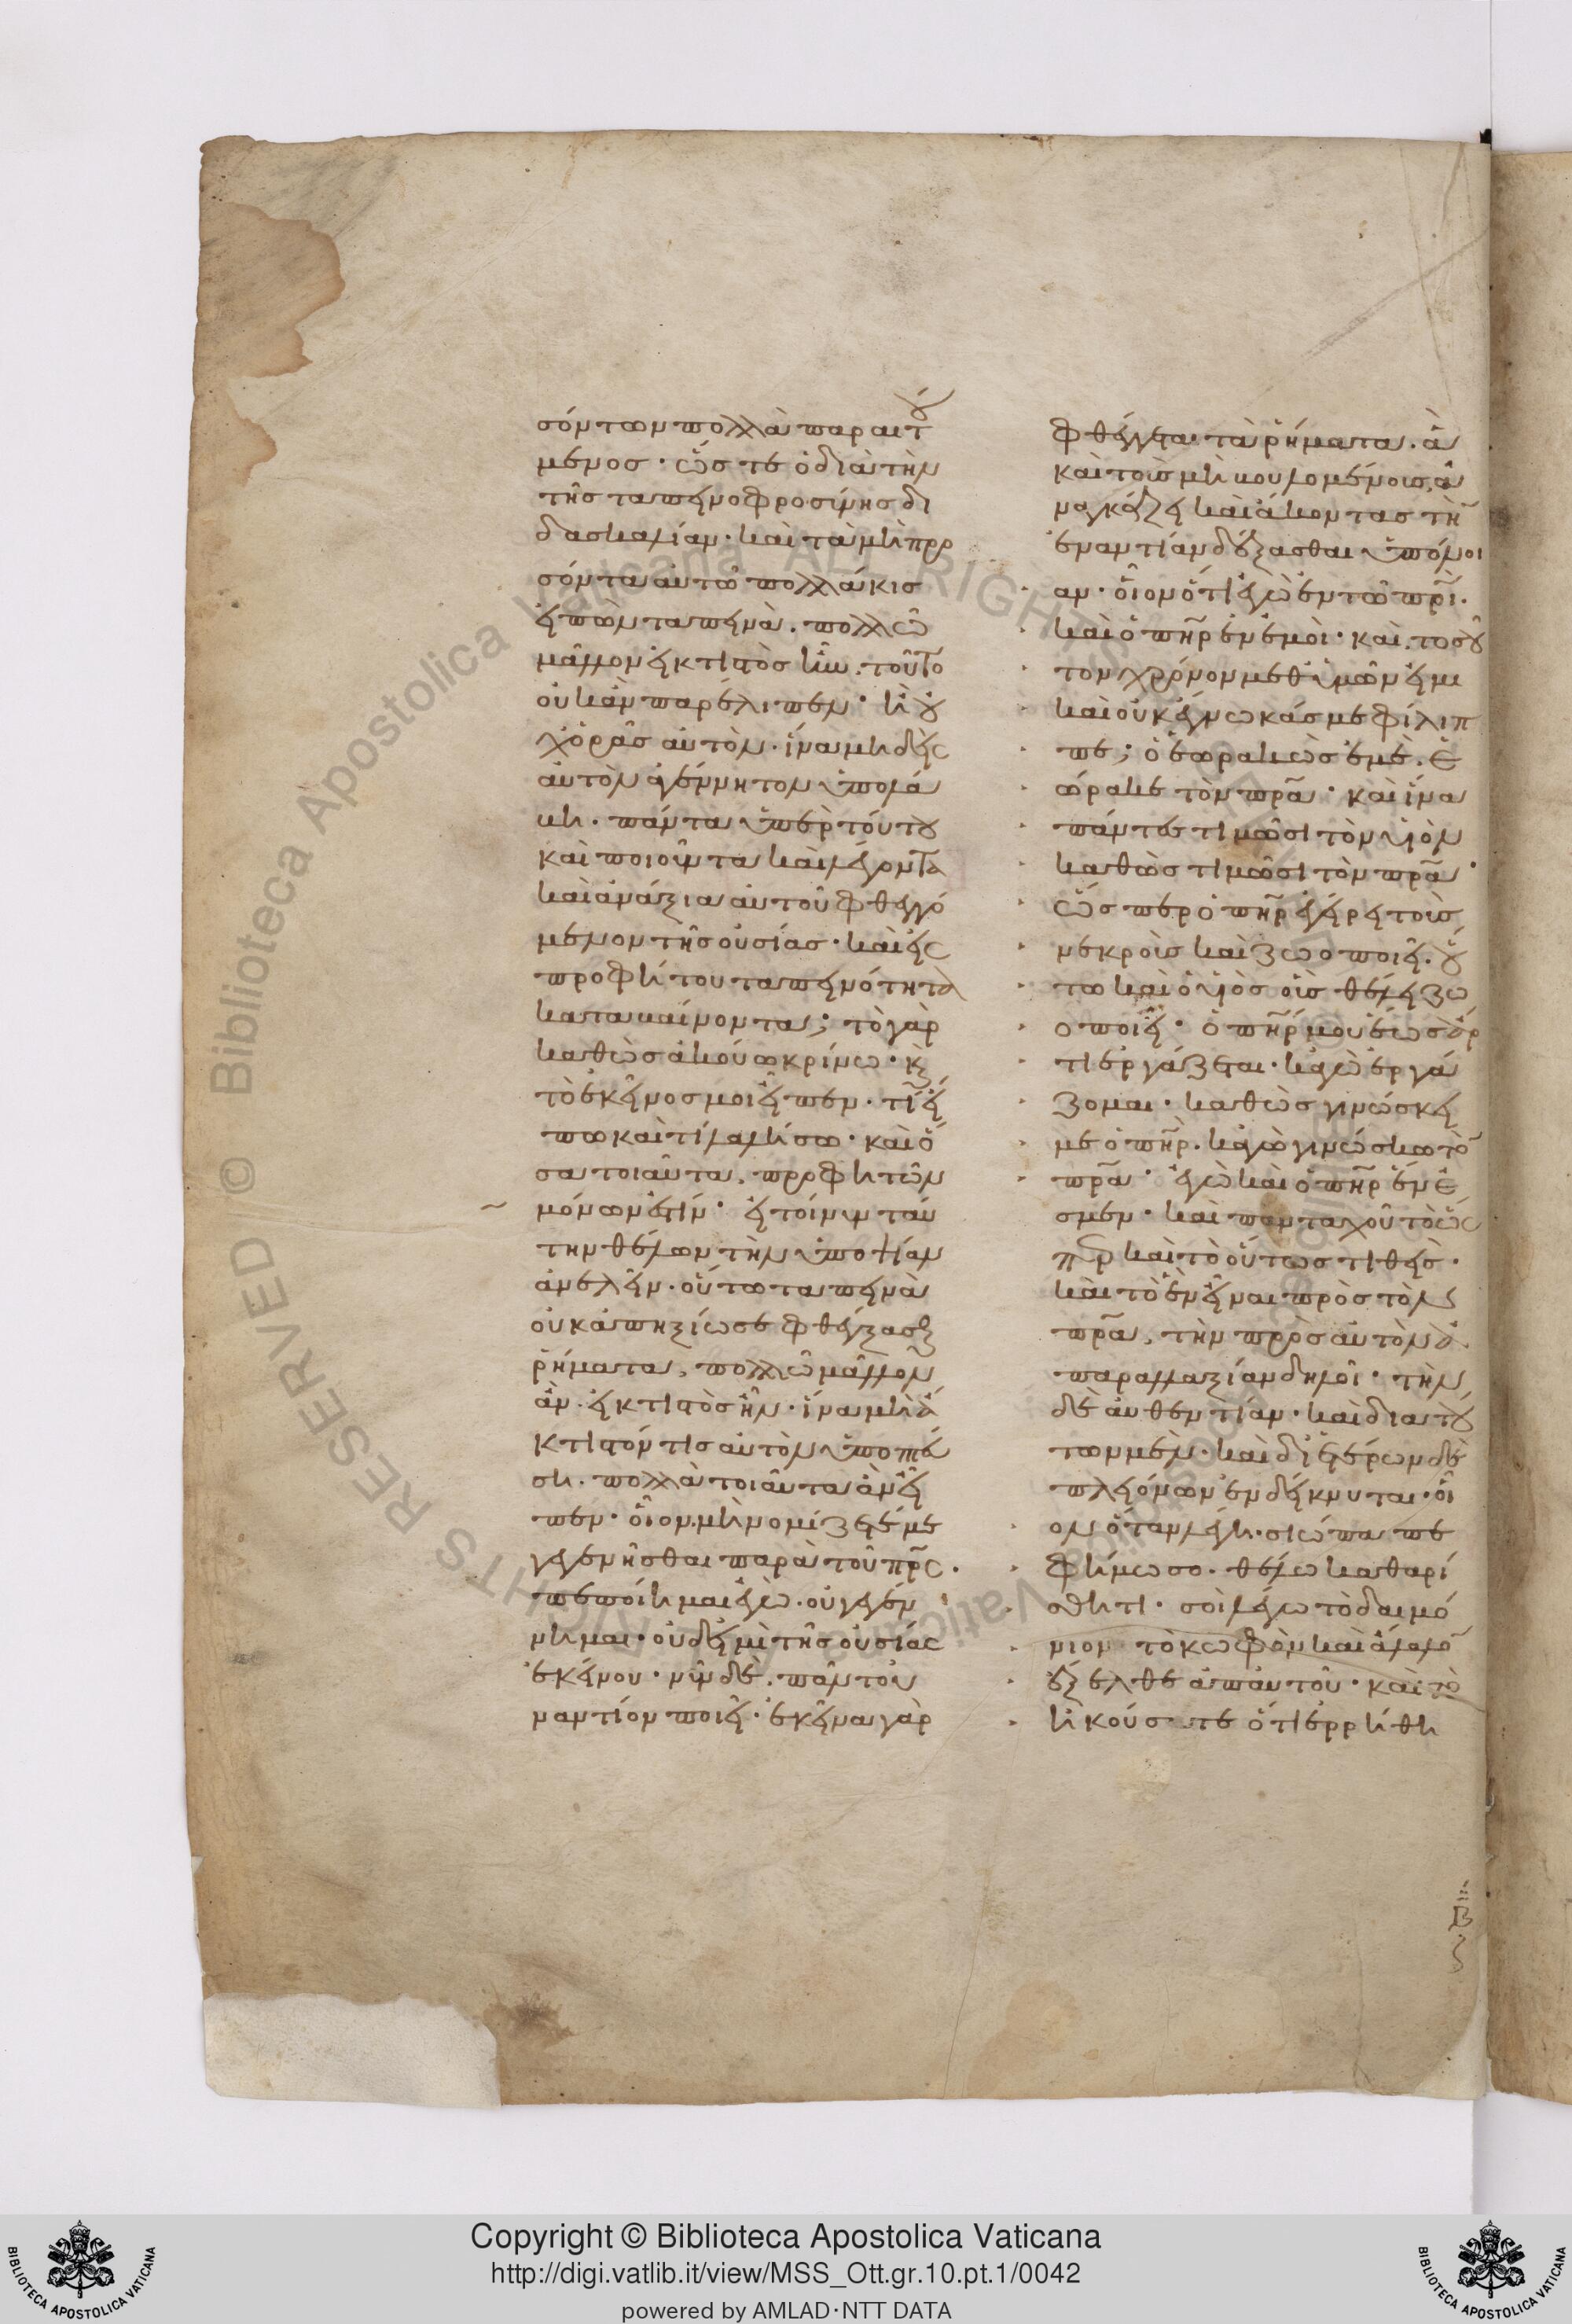 σόντων πολλὰ παραιτού
μενος· ὥστε ὁ διὰ τὴν
τῆς ταπεινοφροσύνης δι
δασκαλίαν· καὶ τὰ μὴ προ
σόντα αὐτῶ πολλάκις
εἰπὼν ταπεινὰ. πολλῶ
μᾶλλον εἰ κτιστὸς ἦν. τοῦτο
οὐκ ἂν παρέλιπεν· ἢ οὐ
χ ὁρᾶς αὐτὸν. ἵνα μηδεὶς
αὐτὸν ἀγέννητον ὑπολά
βη. πάντα ὑπὲρ τούτου
καὶ ποιοῦντα καὶ λέγοντα
καὶ ἀνάξια αὐτοῦ φθεγγό
μενον τῆς οὐσίας· καὶ εἰς
προφήτου ταπεινότητα
καταβαίνοντα; τὸ γὰρ
καθὼς ἀκούω κρίνω· καὶ
τὸ ἐκεῖνος μοι εἶπεν· τί εἴ
πω καὶ τί λαλήσω· καὶ ὅ
σα τοιαῦτα, προφητῶν
μόνων ἐστίν· εἰ τοίνυν ταύ
την θέλων τὴν ὑποψίαν
ἀνελεῖν· οὕτω ταπεινὰ
οὐκ ἀπηξίωσε φθέγξασθαι
ῥήματα, πολλῶ μᾶλλον
ἂν εἰ κτιστὸς ἦν· ἵνα μὴ ἄ
κτιστόν τις αὐτὸν ὑποπτεύ
ση. πολλὰ τοιαῦτα ἂν εἶ
πεν· οἷον. μὴ νομίζετέ με
γεγενῆσθαι παρὰ τοῦ πρς.
πεποίημαι ἐγὼ. οὐ γεγέν
νημαι· οὐδέ εἰμι τῆς οὐσίας
ἐκείνου· νῦν δὲ. πᾶν τοὐ
ναντίον ποιεῖ· ἐκεῖνα γὰρ
φθέγγεται τὰ ῥήματα. ἃ
καὶ τοῖς μὴ βουλομένοις ἀ
ναγκάζει καὶ ἄκοντας τὴν
ἐναντίαν δέξασθαι ὑπόνοι
αν· οἷον ὅτι ἐγὼ ἐν τῶ πρι.
καὶ ὁ πηρ ἐν ἐμοὶ· καὶ. τοσοῦ
τον χρόνον μεθ' ὑμῶν εἰμι
καὶ οὐκ ἔγνωκάς με φίλιπ
πε; ὁ ἑωρακὼς ἐμὲ. ἑ
ώρακε τὸν πρα· καὶ ἵνα
πάντες τιμῶσι τὸν υἱὸν
καθὼς τιμῶσι τὸν πρα·
ὥσπερ ὁ πηρ ἐγείρει τοὺς
νεκροὺς καὶ ζωοποιεῖ. οὕ
τω καὶ ὁ υἱὸς οὓς θέλει ζω
οποιεῖ· ὁ πηρ μου ἕως ἄρ
τι ἐργάζεται· κἀγὼ ἐργά
ζομαι· καθὼς γινώσκει
με ὁ πηρ. κἀγὼ γινώσκω τὸν
πρα· ἐγὼ καὶ ὁ πηρ ἕν ἐ
σμεν· καὶ πανταχοῦ τὸ ὥσ
περ καὶ τὸ οὕτως τιθεὶς.
καὶ τὸ ἓν εἶναι πρὸς τὸν
πρα, τὴν πρὸς αὐτὸν ἀ
παραλλαξίαν δηλοῖ· τὴν
δὲ αὐθεντίαν· καὶ διὰ τού
των μὲν· καὶ δι' ἑτέρων δὲ
πλειόνων ἐνδείκνυται· οἷ
ον ὅταν λέγη. σιώπα πε
φίμωσο. θέλω καθαρί
σθητι· σοὶ λέγω τὸ δαιμό
νιον τὸ κωφὸν καὶ ἄλαλον
ἔξελθε ἀπ' αὐτοῦ· καὶ τὸ
ἠκούσατε ὅτι ἐρρήθη
Copyright © Biblioteca Apostolica Vaticana
http://digi.vatlib.it/view/MSS_Ott.gr.10.pt.1/0042
powered by AMLAD·NTT DATA